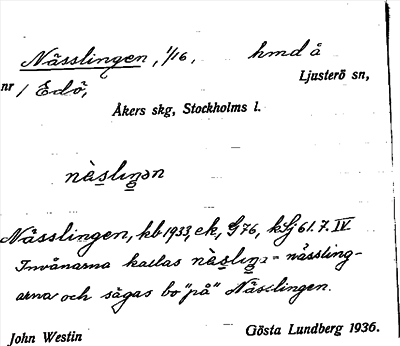 Nässlingen, 1/16, hmd å
Ljusterö sn,
nr 1 Edö,
Åkers skg, Stockholms l.
nàslıŋən
Nässlingen, kb 1933, ek, G 76, kSj 61.7. IV
Invånarna kallas nàslıŋa = nässling-
arna och sägas bo "på" Nässlingen.
John Westin Gösta Lundberg 1936.